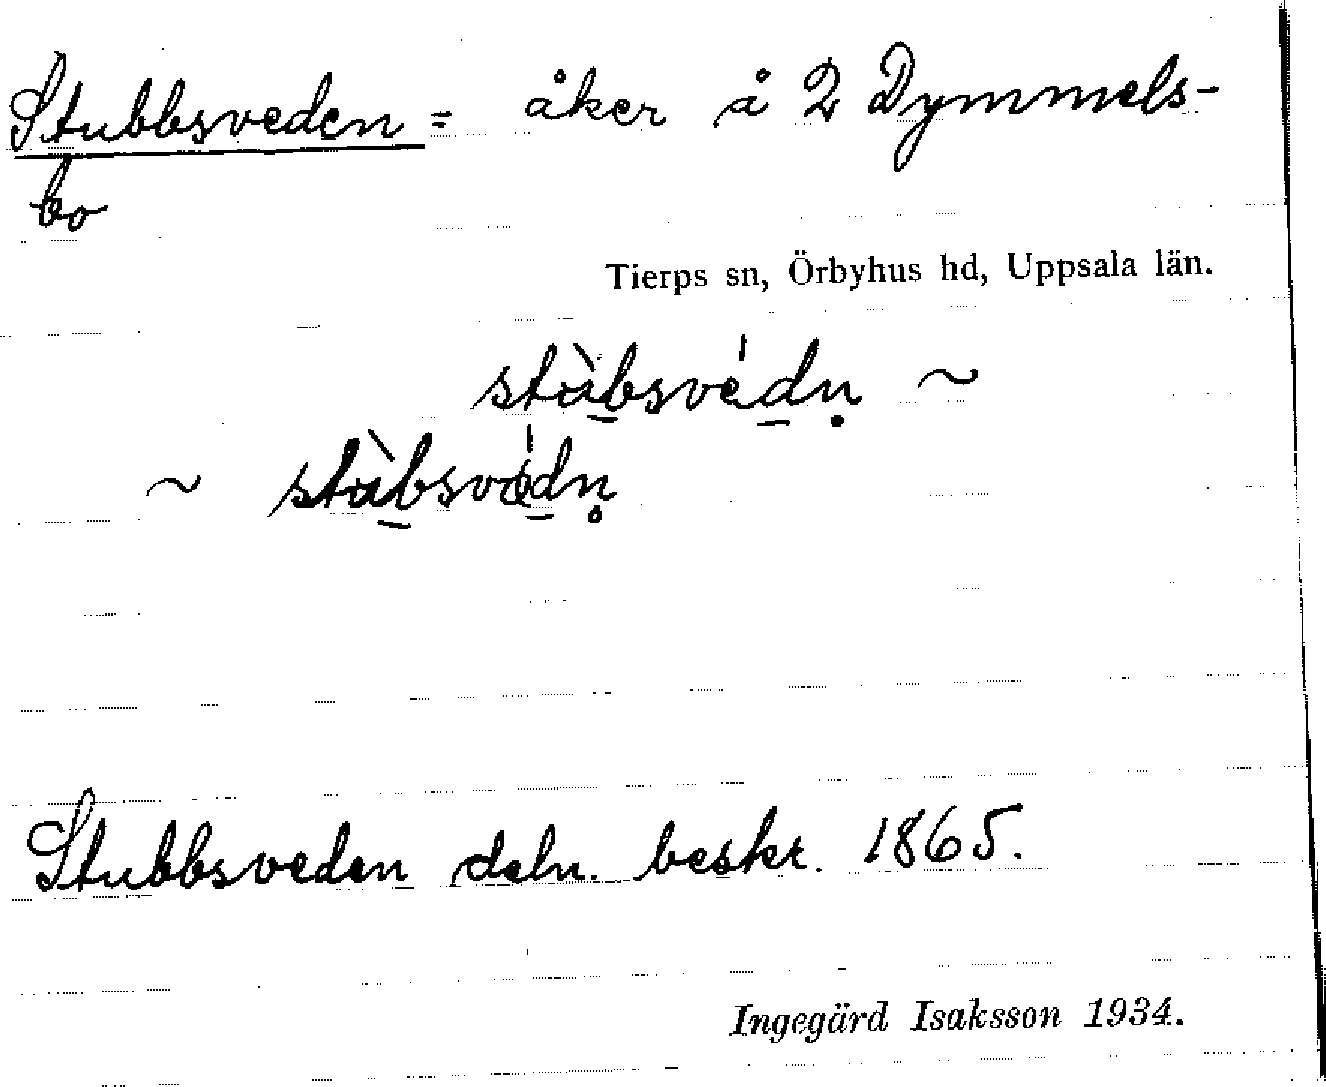 Stubbsveden = åker å 2 Dymmels-
bo
Tierps sn, Örbyhus hd, Uppsala län.
stàb̠svéd̠ṇ ~
~ stàb̠svéd̠n̥
Stubbsveden deln. beskr. 1865.
Ingegärd Isaksson 1934.